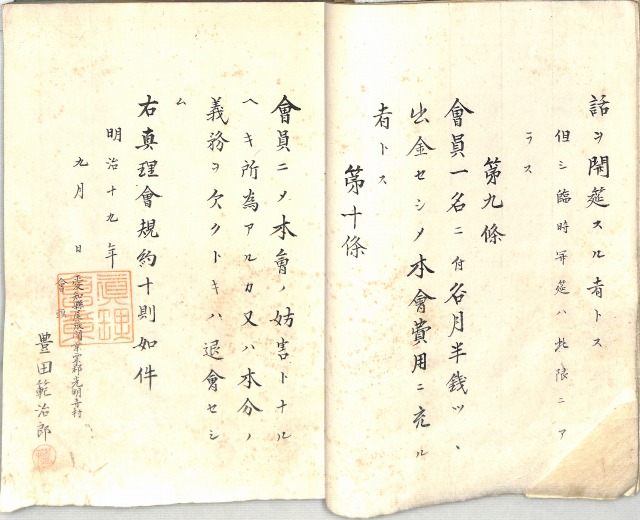 話ヲ開莚スル者トス
但シ臨時開莚ハ此限ニア
ラス
第九條
會員一名ニ付各月半銭ツヽ
出金セシメ本會費用ニ充ル
者トス
第十條
會員ニメ本會ノ妨害トナル
ヘキ所為アルカ又ハ本分ノ
義務ヲ欠クトキハ退會セシ
ム
右真理會規約十則如件
明治十九年
九月 日
愛知縣尾張國葉栗郡光明寺村
會
豊田範治郎